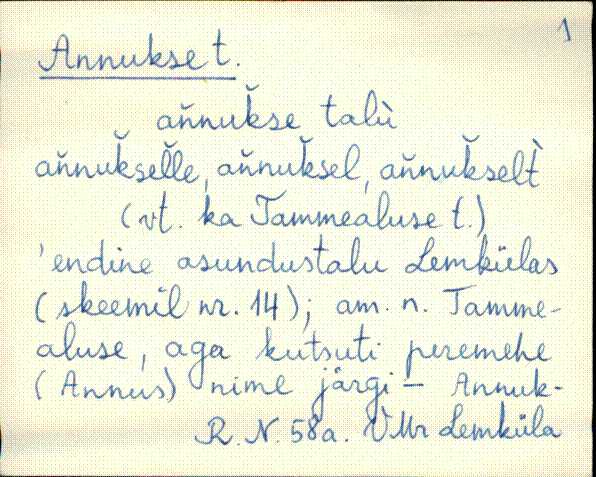 1
Annukse t.
aňnuǩse talù
aňnuǩseľle, aňnuǩsel, aňnuǩselt̀
(vt. ka Tammealuse t.)
'endine asundustalu Lemkülas
(skeemil nr. 14); am. n. Tamme-
aluse, aga kutsuti peremehe
(Annus) nime järgi – Annuk-
R. N. 58a. VMr Lemküla